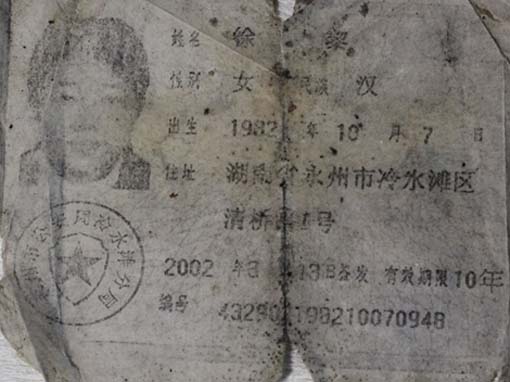 姓名 徐 黎
性别 女 民族 汉
出生 1982 年 10 月 7 日
住址 湖南省永州市冷水滩区
清桥 1号
2002 年3月13日签发 有效期限10年
编号 432901198210070948
永州市公安局冷水滩分局